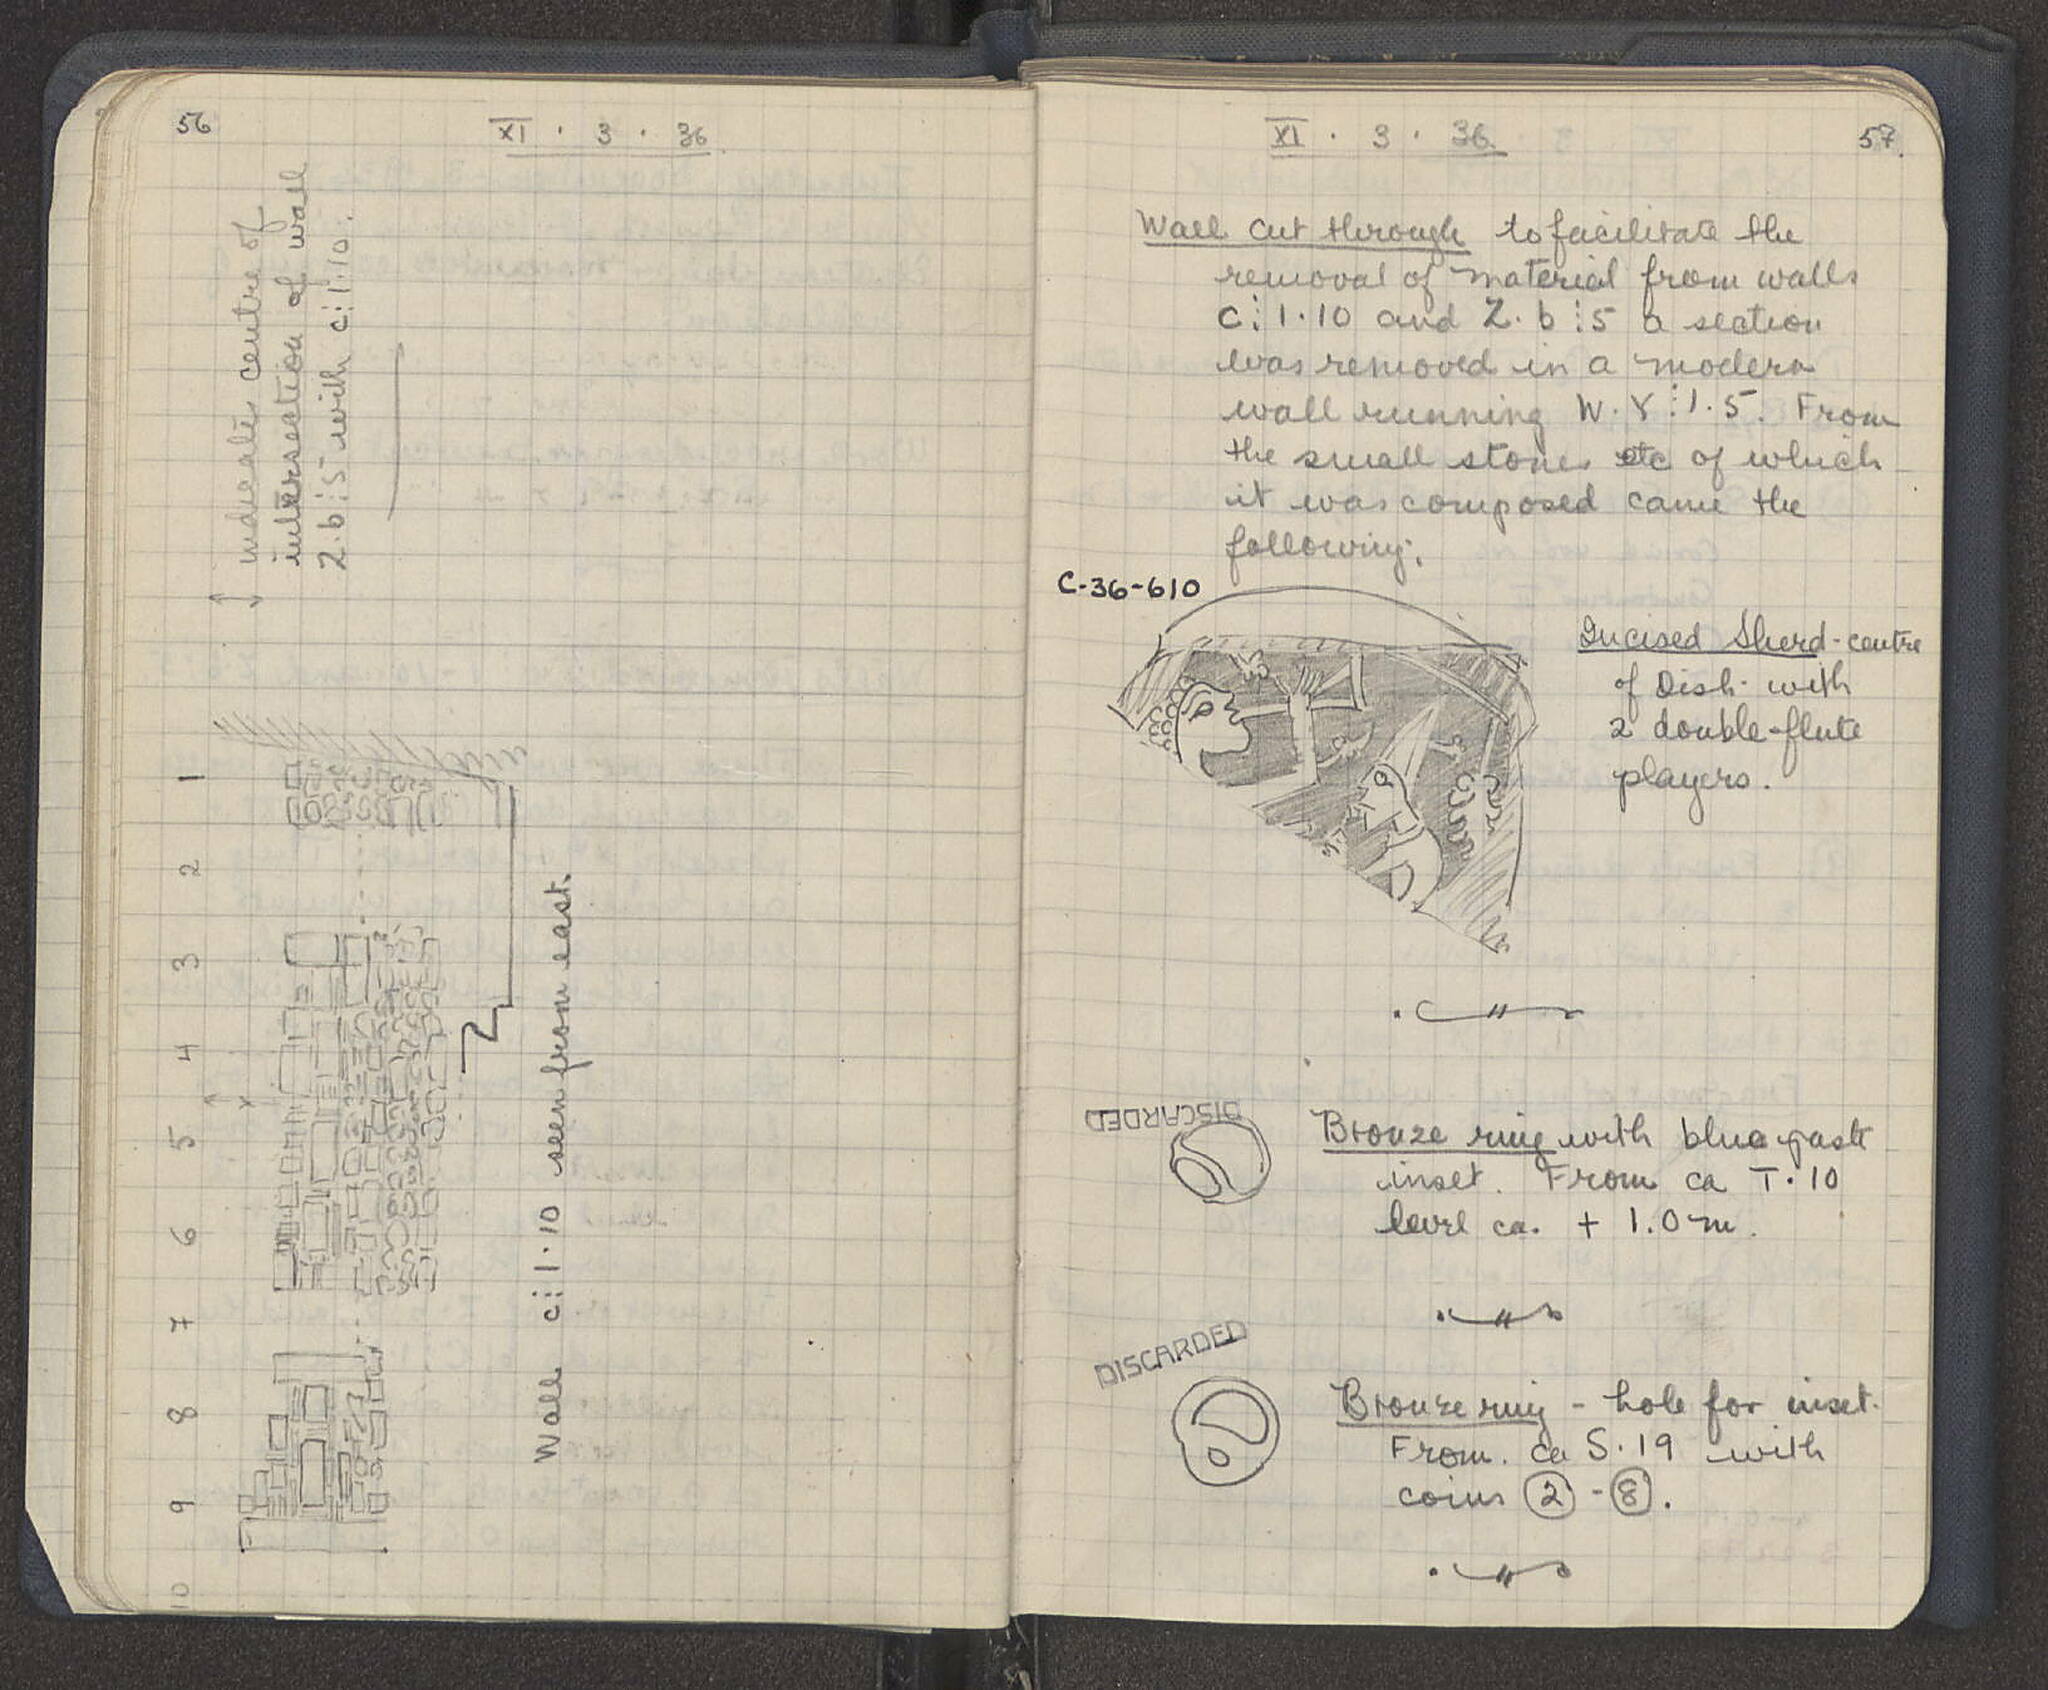 56
XI · 3 · 36
indicates centre of
intersection of wall
Z.b⋮5 with c⋮1·10.
1
2
3
4
5
6
7
8
9
10
Wall c⋮1·10 seen from east.
XI · 3 · 36
57.
Wall cut through to facilitate the
removal of material from walls
c⋮1·10 and Z.b⋮5 a section
was removed in a modern
wall running W.X⋮1.5. From
the small stones etc of which
it was composed came the
following:
C-36-610
Incised Sherd - centre
of Dish with
2 double-flute
players.
DISCARDED
Bronze ring with blue paste
inset. From ca T·10
level ca. + 1.0 m.
DISCARDED
Bronze ring - hole for inset.
From. ca S·19 with
coins ② - ⑧.